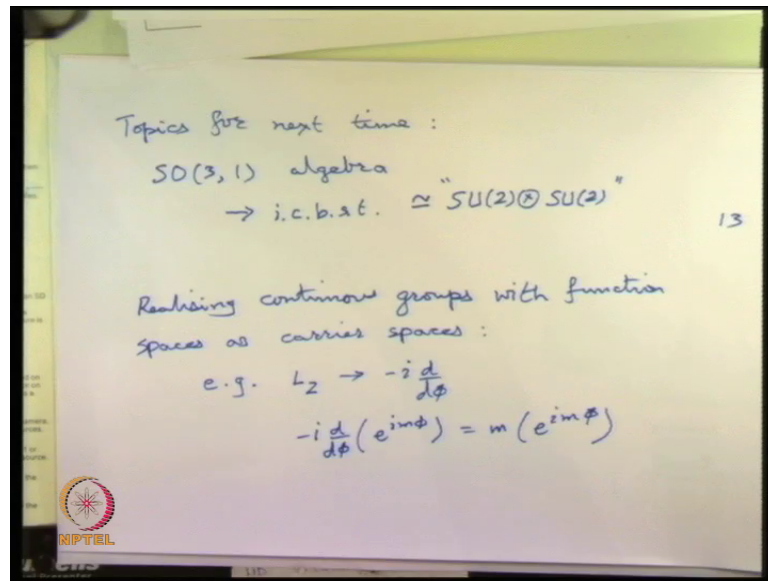 Topics for next time :
SO(3,1) algebra
→ i.c.b.st. ≃ "SU(2)⊗SU(2)"
13
Realising continous groups with function
spaces as carrier spaces :
e.g. L_Z → -i d/dϕ
-i d/dϕ (e^{imϕ}) = m (e^{imϕ})
NPTEL